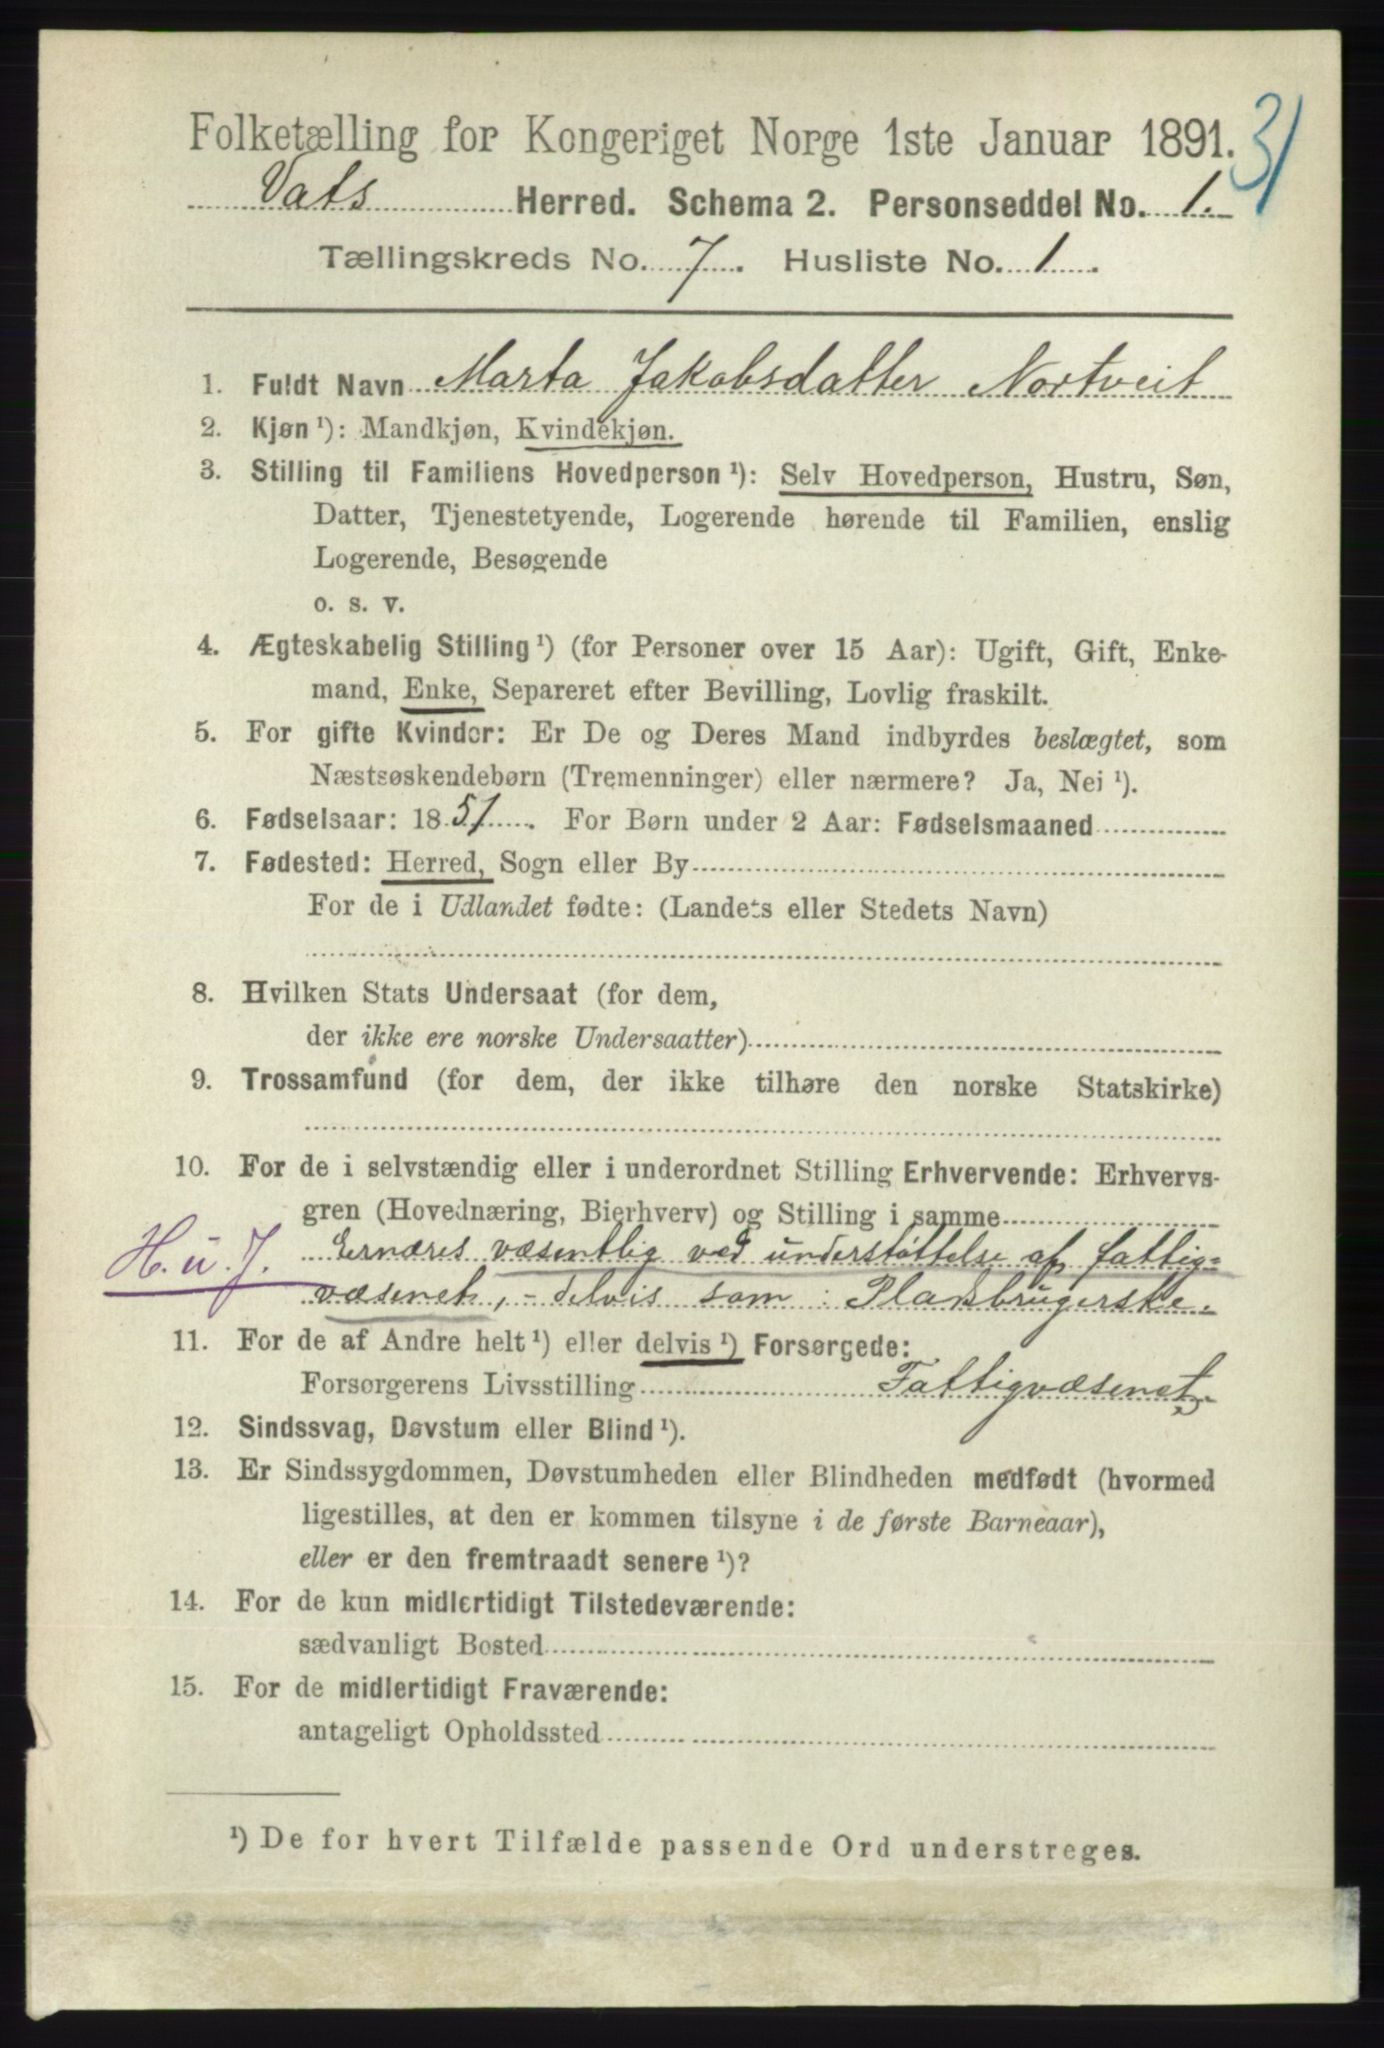 31
Folketælling for Kongeriget Norge 1ste Januar 1891.
Vats Herred. Schema 2. Personseddel No. 1.
Tællingskreds No. 7. Husliste No. 1.
1. Fuldt Navn Marta Jakobsdatter Nortveit
2. Kjøn ¹): Mandkjøn, Kvindekjøn.
3. Stilling til Familiens Hovedperson ¹): Selv Hovedperson, Hustru, Søn,
Datter, Tjenestetyende, Logerende hørende til Familien, enslig
Logerende, Besøgende
o. s. v.
4. Ægteskabelig Stilling ¹) (for Personer over 15 Aar): Ugift, Gift, Enke-
mand, Enke, Separeret efter Bevilling, Lovlig fraskilt.
5. For gifte Kvinder: Er De og Deres Mand indbyrdes beslægtet, som
Næstsøskendebørn (Tremenninger) eller nærmere? Ja, Nei ¹).
6. Fødselsaar: 1851. For Børn under 2 Aar: Fødselsmaaned
7. Fødested: Herred, Sogn eller By
For de i Udlandet fødte: (Landets eller Stedets Navn)
8. Hvilken Stats Undersaat (for dem,
der ikke ere norske Undersaatter)
9. Trossamfund (for dem, der ikke tilhøre den norske Statskirke)
10. For de i selvstændig eller i underordnet Stilling Erhvervende: Erhvervs-
gren (Hovednæring, Bierhverv) og Stilling i samme
H. u. J. Ernæres væsentlig ved understøttelse af fattig=
væsenet, - delvis som Pladsbrugerske.
11. For de af Andre helt ¹) eller delvis ¹) Forsørgede:
Forsørgerens Livsstilling Fattigvæsenet
12. Sindssvag, Døvstum eller Blind ¹).
13. Er Sindssygdommen, Døvstumheden eller Blindheden medfødt (hvormed
ligestilles, at den er kommen tilsyne i de første Barneaar),
eller er den fremtraadt senere ¹)?
14. For de kun midlertidigt Tilstedeværende:
sædvanligt Bosted
15. For de midlertidigt Fraværende:
antageligt Opholdssted
¹) De for hvert Tilfælde passende Ord understreges.